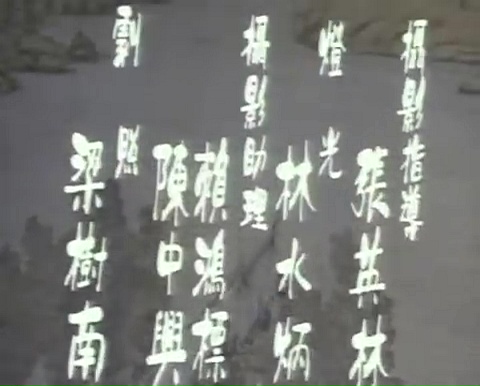 攝影指導
張英林
燈光
林水炳
攝影助理
賴鴻標
陳中興
劇照
梁樹南